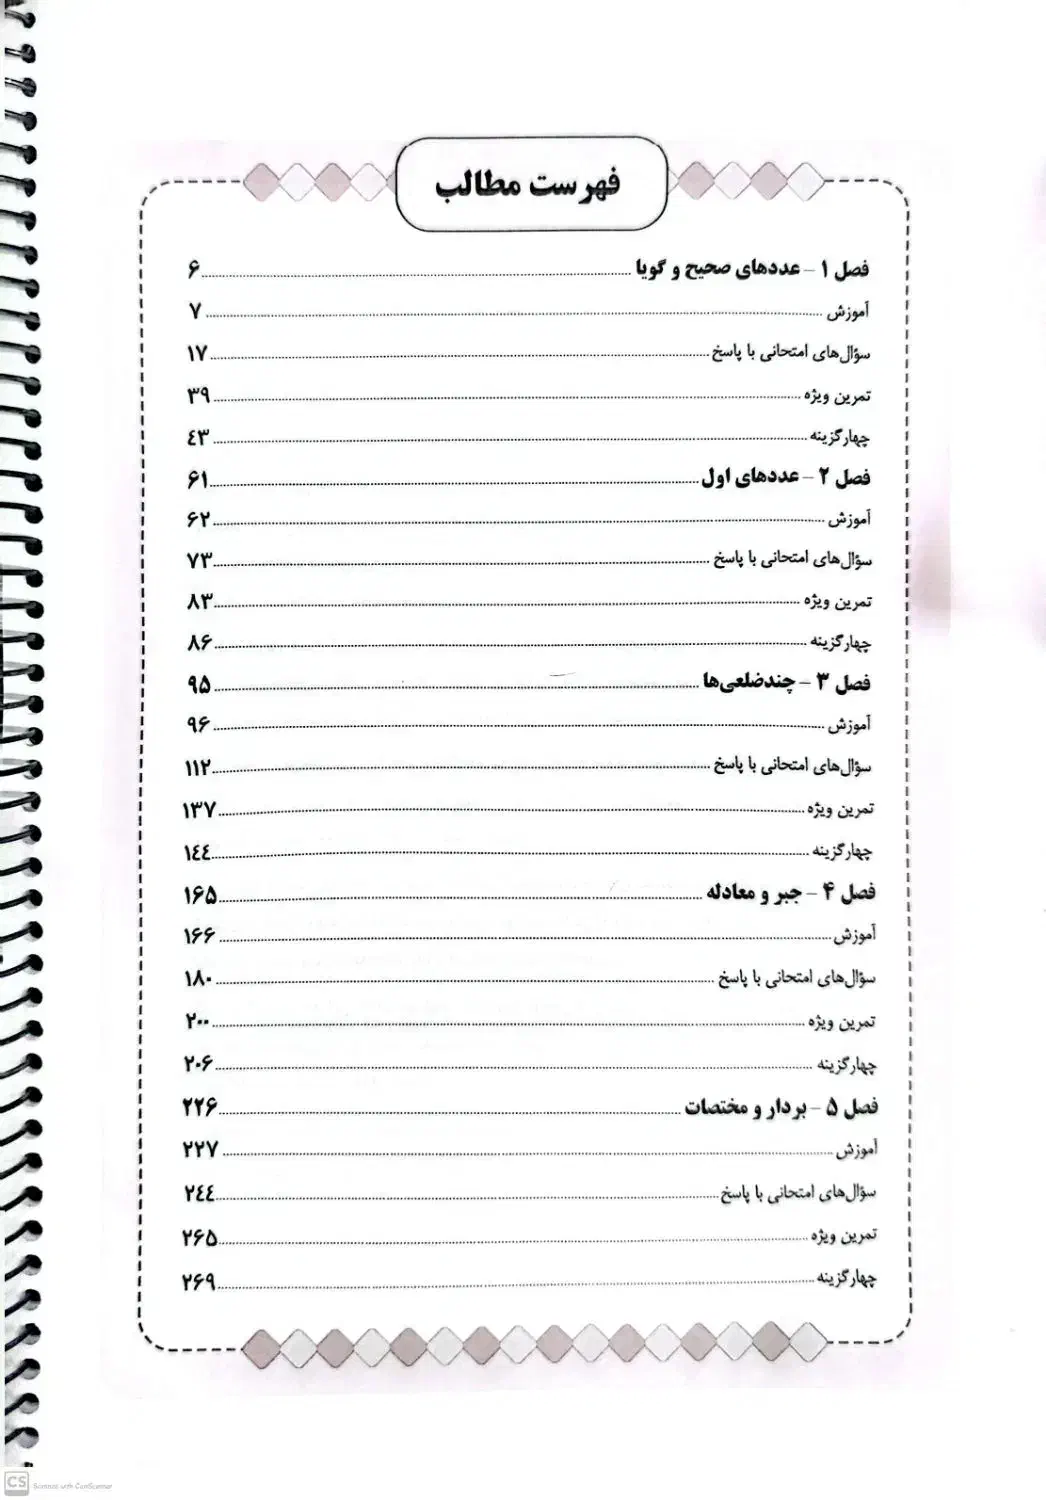 فهرست مطالب
فصل ۱ – عددهای صحیح و گویا ۶
آموزش ۷
سؤال‌های امتحانی با پاسخ ۱۷
تمرین ویژه ۳۹
چهارگزینه ٤۳
فصل ۲ – عددهای اول ۶۱
آموزش ۶۲
سؤال‌های امتحانی با پاسخ ۷۳
تمرین ویژه ۸۳
چهارگزینه ۸۶
فصل ۳ – چندضلعی‌ها ۹۵
آموزش ۹۶
سؤال‌های امتحانی با پاسخ ۱۱۲
تمرین ویژه ۱۳۷
چهارگزینه ۱٤٤
فصل ۴ – جبر و معادله ۱۶۵
آموزش ۱۶۶
سؤال‌های امتحانی با پاسخ ۱۸۰
تمرین ویژه ۲۰۰
چهارگزینه ۲۰۶
فصل ۵ – بردار و مختصات ۲۲۶
آموزش ۲۲۷
سؤال‌های امتحانی با پاسخ ۲٤٤
تمرین ویژه ۲۶۵
چهارگزینه ۲۶۹
CS Scanned with CamScanner